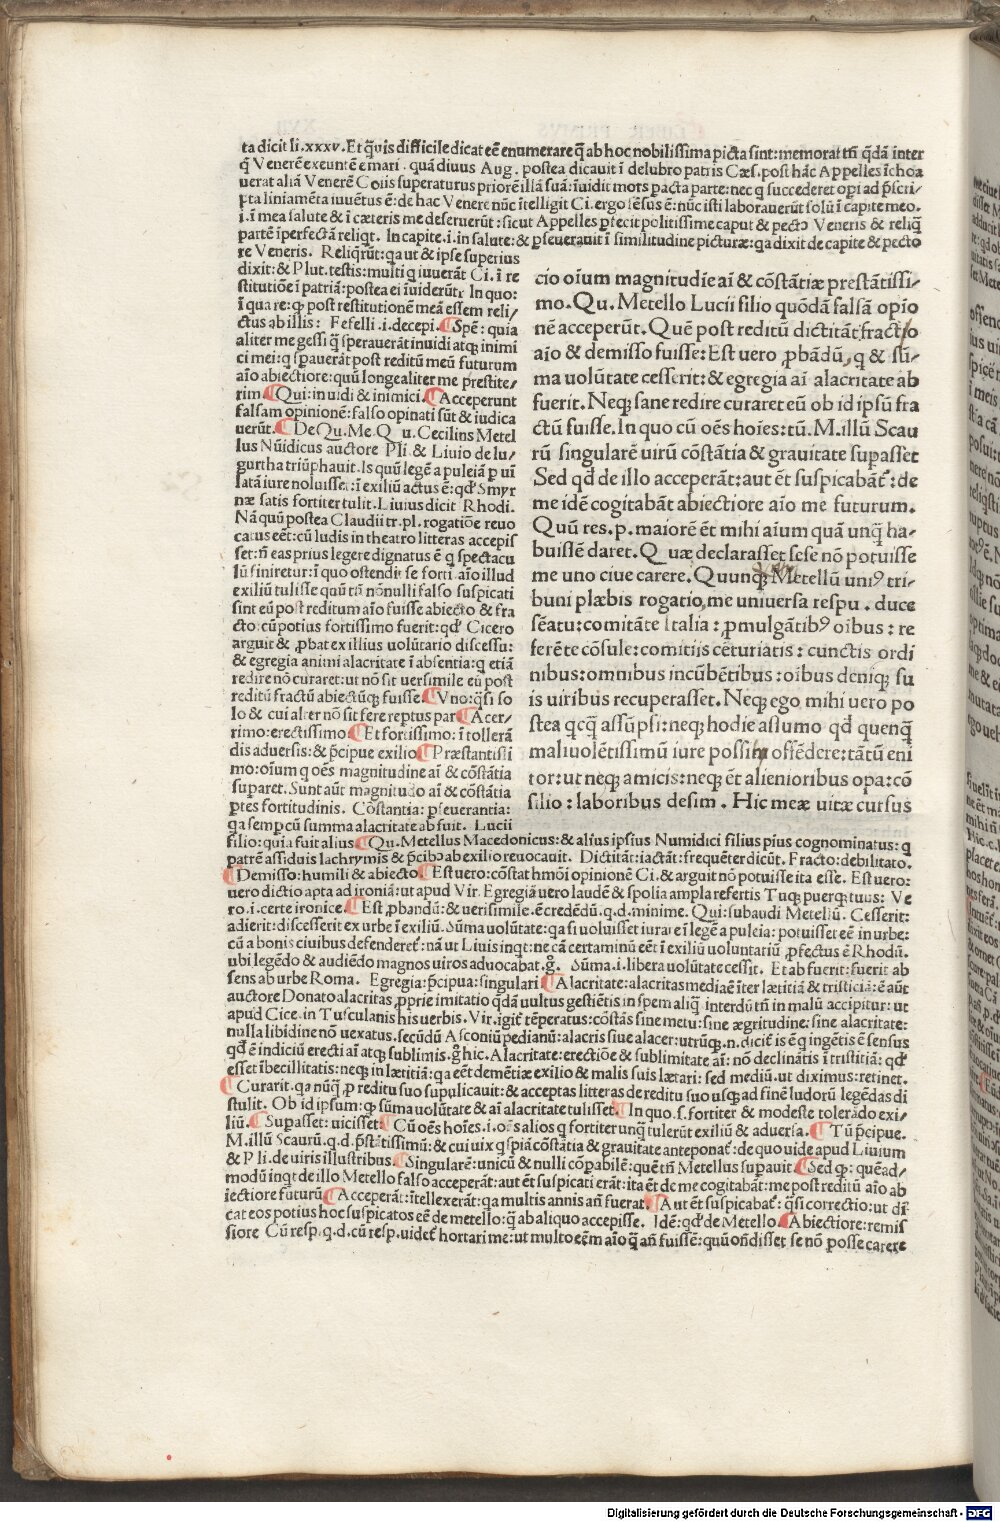 ta dicit li.xxxv. Et q̃uis difficile dicat eē enumerare q̃ ab hoc nobilissima picta sint: memorat tñ q̃dā inter
q̃ Venerē exeuntē e mari. quā diuus Aug. postea dicauit ī delubro patris Cæs. post hāc Appelles īchoa
uerat aliā Venerē Cois superaturus priorē illā suā: īuidit mors pacta parte: nec q succederet opi ad p̄scri-
pta liniamēta iuuētus ē: de hac Venere nūc ītelligit Ci. ergo sēsus ē: nūc isti laborauerūt solū ī capite meo.
i. ī mea salute & ī cæteris me deseruerūt: sicut Appelles p̄fecit politissime caput & pectꝯ Veneris & reliq̃
partē īperfectā reliqt. In capite. i. in salute: & p̄seuerauit ī similitudine picturæ: qa dixit de capite & pecto
re Veneris. Reliq̄rūt: qa ut & ipse superius
dixit: & Plut. testis: multi q iuuerāt Ci. ī re
stitutiōe ī patriā: postea ei īuiderūt. In quo:
ī qua re: ꝙ post restitutionē meā essem reli-
ctus ab illis: Fefelli .i. decepi. ¶Spē: quia
aliter me gessi q̃ sperauerāt inuidi atqꝫ inimi
ci mei: q spauerāt post reditū meū futurum
aīo abiectiore: quū longe aliter me prestite-
rim ¶Qui: inuidi & inimici. ¶Acceperunt
falsam opinionē: falso opinati sūt & iudica
uerūt. ¶De Qu. Me. Q u. Cecilins Metel
lus Nūidicus auctore Pli. & Liuio de Iu-
gurtha triūphauit. Is quū legē apuleiā p uī
latā iure noluisset: ī exiliū actus ē: qđ Smyr
næ satis fortiter tulit. Liuius dicit Rhodi.
Nā quū postea Claudii tr. pl. rogatiōe reuo
catus eēt: cū ludis in theatro litteras accepis
set: ñ eas prius legere dignatus ē q̃ spectacu
lū finiretur: ī quo ostendit se forti aīo illud
exiliū tulisse quū tñ nōnulli falso suspicati
sint eū post reditum aīo fuisse abiecto & fra
cto: cū potius fortissimo fuerit: qđ Cicero
arguit & ꝓbat ex illius uolūtario discessu:
& egregia animi alacritate ī absentia: q etiā
redire nō curaret: ut nō sit uersimile eū post
reditū fractū abiectūqꝫ fuisse. ¶Vno: q̃si so
lo & cui alter nō sit fere reptus par ¶Acer-
rimo: erectissimo ¶Et fortissimo: ī tollerā
dis aduersis: & p̄cipue exilio ¶Præstantissi
mo: oīum q oēs magnitudine aī & cōstātia
suparet. Sunt aūt magnitudo aī & cōstātia
ꝑtes fortitudinis. Cōstantia: pseuerantia:
qa semp cū summa alacritate abfuit. Lucii
cio oīum magnitudīe aī & cōstātiæ prestātissi-
mo. Qu. Metello Lucii filio quōdā falsā opio
nē acceperūt. Quē post reditū dictitāt fracto
aīo & demisso fuisse: Est uero ꝓbādū, q & sū-
ma uolūtate cesserit: & egregia aī alacritate ab
fuerit. Neqꝫ sane redire curaret eū ob id ipsū fra
ctū fuisse. In quo cū oēs hoīes: tū. M. illū Scau
rū singularē uirū cōstātia & grauitate supasset
Sed qđ de illo acceperāt: aut ēt suspicabāt: de
me idē cogitabāt abiectiore aīo me futurum.
Quū res. p. maiorē ēt mihi aīum quā unq̃ ha-
buissē daret. Q uæ declarasset sese nō potuisse
me uno ciue carere. Quunqꝫ Metellū uniꝰ tri-
buni plæbis rogatio, me uniuersa respu. duce
sēatu: comitāte Italia: ꝓmulgātibꝰ oibus: re
ferēte cōsule: comitiis cēturiatis: cunctis ordi
nibus: omnibus incūbētibus: oibus deniqꝫ su
is uiribus recuperasset. Neqꝫ ego mihi uero po
stea qcq̃ assūpsi: neqꝫ hodie assumo qđ quenq̃
maliuolētissimū iure possit offēdere: tātū eni
tor: ut neqꝫ amicis: neqꝫ ēt alienioribus opa: cō
silio: laboribus desim. Hic meæ uitæ cursus
filio: quia fuit alius ¶Qu. Metellus Macedonicus: & alius ipsius Numidici filius pius cognominatus: q
patrē assiduis lachrymis & p̄cibꝯ ab exilio reuocauit. Dictitāt: iactāt: frequēter dicūt. Fracto: debilitato.
¶Demisso: humili & abiecto. ¶Est uero: cōstat hmōi opinionē Ci. & arguit nō potuisse ita esse. Est uero:
uero dictio apta ad ironiā: ut apud Vir. Egregiā uero laudē & spolia ampla refertis Tuqꝫ puerqꝫ tuus: Ve
ro. i. certe ironice. ¶Est ꝓbandū: & uerisimile. ē credēdū. q.d. minime. Qui: subaudi Metellū. Cesserit:
adierit: discesserit ex urbe ī exiliū. Sūma uolūtate: qa si uoluisset iurai eī legē apuleia: potuisset eē in urbe:
cū a bonis ciuibus defenderet: nā ut Liuis inqt: ne cā certaminū eēt ī exiliū uoluntariū ꝓfectus ē Rhodū.
ubi legēdo & audiēdo magnos uiros aduocabat. Sūma. i. libera uolūtate cessit. Et abfuerit: fuerit ab
sens ab urbe Roma. Egregia: p̄cipua: singulari ¶Alacritate: alacritas media ē īter lætitiā & tristiciā: ē aūt
auctore Donato alacritas ꝓprie imitatio q̃dā uultus gestiētis in spem aliq̃ interdū tñ in malū accipitur: ut
apud Cice. in Tusculanis his uerbis. Vir. igit tēperatus: cōstās sine metu: sine ægritudine: sine alacritate:
nulla libidine nō uexatus. secūdū Asconiū pedianū: alacris siue alacer: utrūqꝫ. n. dicit is ē q ingētis ē sensus
qđ ē indiciū erecti aī atqꝫ sublimis. hic. Alacritate: erectiōe & sublimitate aī: nō declinātis ī tristitiā: qđ
esset ībecillitatis: neqꝫ in lætitiā: qa eēt demētiæ exilio & malis suis lætari: sed mediū. ut diximus: retinet.
¶Curarit. qa nūq̃ ꝓ reditu suo supulicauit: & acceptas litteras de reditu suo usqꝫ ad finē ludorū legēdas di
stulit. Ob id ipsum: ꝙ sūma uolūtate & aī alacritate tulisset. ¶In quo. s. fortiter & modeste tolerādo exi-
liū. ¶Supasset: uicisset: ¶Cū oēs hoīes. i. oēs alios q fortiter unq̃ tulerūt exiliū & aduersa. ¶Tū p̄cipue.
M. illū Scaurū. q. d. p̄stātissimū: & cui uix qspiā cōstātia & grauitate anteponat: de quo uide apud Liuium
& Pli. de uiris illustribus. ¶Singularē: unicū & nulli cōpabilē: quē tñ Metellus supauit. ¶Sed ꝙ: quē ad-
modū inqt de illo Metello falso acceperāt: aut ēt suspicati erāt: ita ēt de me cogitabāt: me post reditū aīo ab
iectiore futurū ¶Acceperāt: ītellexerāt: qa multis annis añ fuerat. ¶Aut ēt suspicabat: q̃si correctio: ut dī
cat eos potius hoc suspicatos eē de metello: q̃ ab aliquo accepisse. Idē: qđ de Metello. ¶Abiectiore: remis
siore Cū resp. q. d. cū resp. uidet hortari me: ut multo eēm aīo q̃ añ fuissē: quū oñdisset se nō posse carere
Digitalisierung gefördert durch die Deutsche Forschungsgemeinschaft - DFG